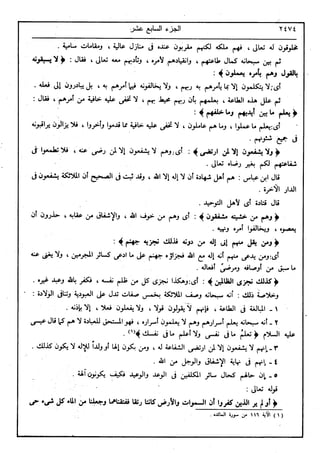 ٢٤٧٤ الجزء السابع عشر
مخلوقون له تعالى ، فهم ملكه لكنهم مقربون عنده فى منازل عالية ، ومقامات سامية .
ثم بين سبحانه كمال طاعتهم ، وانقيادهم لأمره ، وتأدبهم معه تعالى ، فقال : ﴿ لا يسبقونه
بالقول وهم بأمره يعملون ﴾ :
أى : لا يتكلمون إلا بما يأمرهم به ربهم ، ولا يخالفونه فيما أمرهم به ، بل يبادرون إلى فعله .
ثم علل هذه الطاعة ، بعلمهم بأن ربهم محيط بهم ، لا تخفى عليه خافية من أمرهم ، فقال :
﴿ يعلم ما بين أيديهم وما خلفهم ﴾ :
أى : يعلم ما عملوا ، وما هم عاملون ، لا تخفى عليه خافية مما قدموا وأخروا ، فلا يزالون يراقبونه
فى جميع شئونهم .
﴿ ولا يشفعون إلا لمن ارتضى ﴾ : أى : وهم لا يشفعون إلا لمن رضى عنه ، فلا تطمعوا فى
شفاعتهم لكم بغير رضاه تعالى .
قال ابن عباس : هم أهل شهادة أن لا إله إلا الله ، وقد ثبت فى الصحيح أن الملائكة يشفعون فى
الدار الآخرة .
قال قتادة أى لأهل التوحيد .
﴿ وهم من خشيته مشفقون ﴾ : أى وهم من خوف الله ، والإشفاق من عقابه ، حذرون أن
يعصوه ، ويخالفوا أمره ونهيه .
﴿ ومن يقل منهم إنى إله من دونه فذلك نجزيه جهنم ﴾ :
أى : ومن يدعى منهم أنه إله مع الله فجزاؤه جهنم على ما ادعى كسائر المجرمين ، ولا يغنى عنه
ما سبق من أوصافه ومرضىّ أفعاله .
﴿ كذلك نجزى الظالمين ﴾ : أى : وهكذا نجزى كل من ظلم نفسه ، فكفر بالله وعبد غيره .
وخلاصة ذلك : أنه سبحانه وصف الملائكة بخمس صفات تدل على العبودية وتنافى الولادة :
١ - المبالغة فى الطاعة ، فإنهم لا يقولون قولا ، ولا يعملون فعلا ، إلا بإذنه .
٢ - أنه سبحانه يعلم أسرارهم وهم لا يعلمون أسراره ، فهو المستحق للعبادة لا هم كما قال عيسى
عليه السلام ﴿ تعلم ما فى نفسى ولا أعلم ما فى نفسك ﴾(١)
٣ - إنهم لا يشفعون إلا لمن ارتضى الشفاعة له ، ومن يكون إلها أو ولداً للإله لا يكون كذلك .
٤ - إنهم فى نهاية الإشفاق والوجل من الله .
٥ - إن حالهم كحال سائر المكلفين فى الوعد والوعيد فكيف يكونون آلهة .
قوله تعالى :
﴿ أو لم ير الذين كفروا أن السموات والأرض كانتا رتقا ففتقناهما وجعلنا من الماء كل شىء حى
(١) الآية ١١٦ من سورة المائدة .